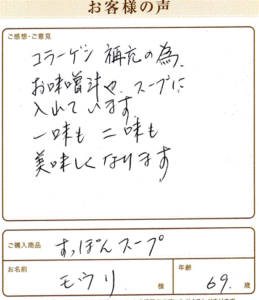 お客様の声
ご感想・ご意見
コラーゲン 補充の為、
お味噌汁や、スープに
入れています。
一味も 二味も
美味しくなります
ご購入商品 すっぽんスープ
お名前 モウリ 様 年齢 69 歳